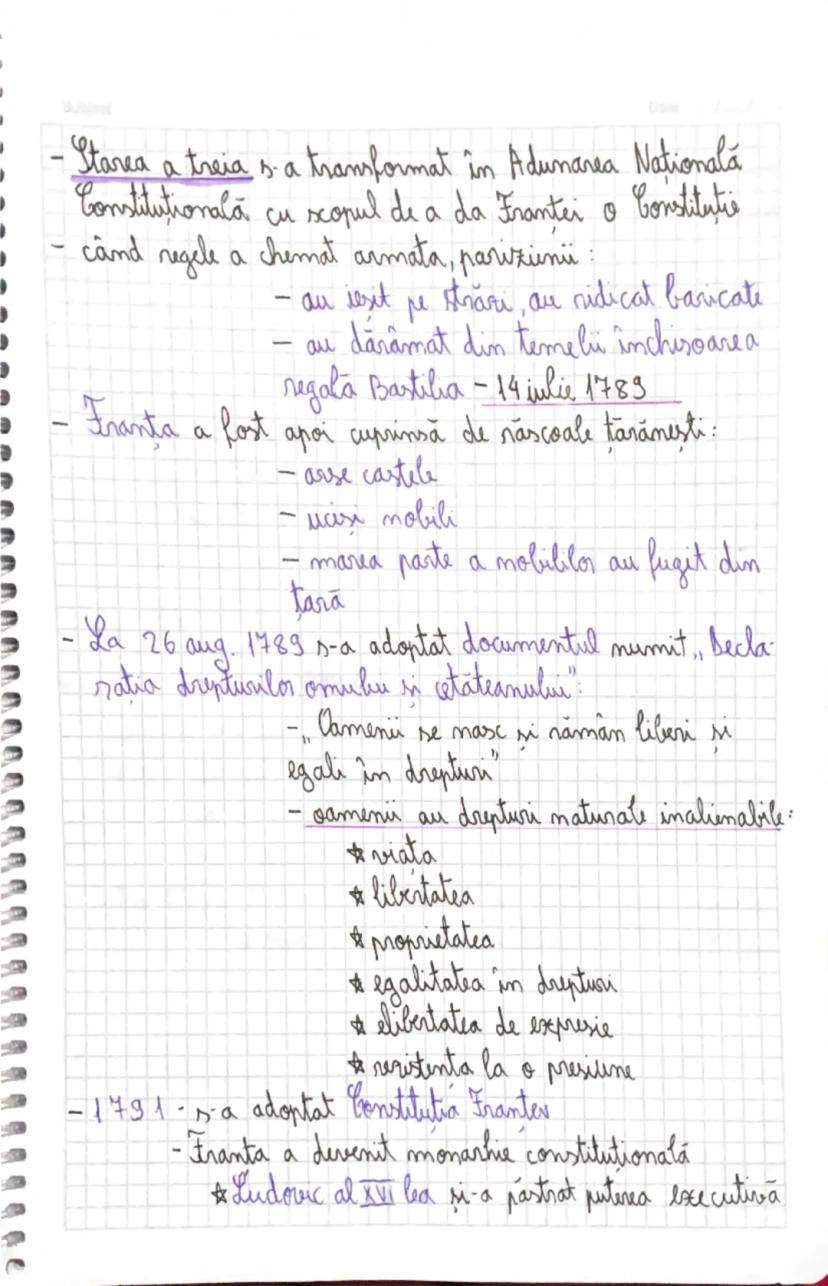 Subject Date
- Starea a treia s-a transformat în Adunarea Națională
Constituțională cu scopul de a da Franței o Constituție
- când regele a chemat armata, parizienii:
- au ieșit pe străzi, au ridicat baricate
- au dărâmat din temelii închisoarea
regală Bastilia - 14 iulie 1789
- Franța a fost apoi cuprinsă de răscoale țărănești:
- arse castele
- uciși nobili
- marea parte a nobililor au fugit din
țară
- La 26 aug. 1789 s-a adoptat documentul numit „Decla-
rația drepturilor omului și cetățeanului":
- „Oamenii se nasc și rămân liberi și
egali în drepturi"
- oamenii au drepturi naturale inalienabile:
☆ viața
☆ libertatea
☆ proprietatea
☆ egalitatea în drepturi
☆ elibertatea de expresie
☆ rezistența la o presiune
- 1791 - s-a adoptat Constituția Franței
- Franța a devenit monarhie constituțională
☆ Ludovic al XVI lea și-a păstrat puterea executivă